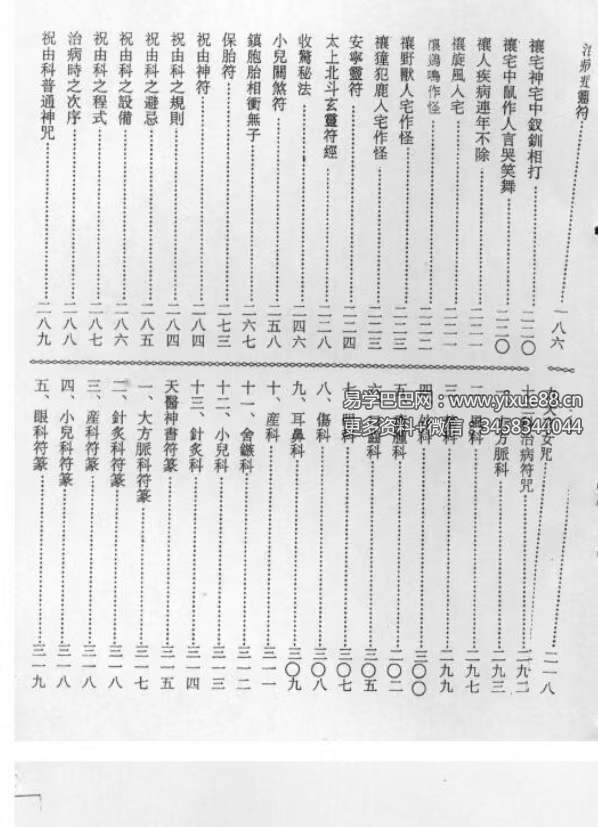 靈符……一八六
禳宅神宅中釵釧相打……二二〇
禳宅中鼠作人言哭笑舞……二二〇
禳人疾病連年不除……二二一
禳旋風人宅……二二一
禳鷄鳴作怪……二二二
禳野獸人宅作怪……二二三
禳獐犯鹿人宅作怪……二二三
安寧靈符……二二四
太上北斗玄靈符經……二二八
收驚秘法……二四六
小兒關煞符……二五八
鎮胞胎相衝無子……二六七
保胎符……二七三
祝由神符……二八四
祝由科之規則……二八四
祝由科之避忌……二八五
祝由科之設備……二八六
祝由科之程式……二八七
治病時之次序……二八八
祝由科普通神咒……二八九
咒……二一八
十三科治病符咒……二九二
方脈科……二九三
二、風科……二九七
三、科……二九九
四、科……三〇〇
五、瘡腫科……三〇二
六、齒科……三〇五
七、眼科……三〇七
八、傷科……三〇八
九、耳鼻科……三〇九
十、產科……三一一
十一、金鏃科……三一二
十二、小兒科……三一三
十三、針炙科……三一四
天醫神書符篆……三一五
一、大方脈科符篆……三一七
二、針炙科符篆……三一八
三、產科符篆……三一八
四、小兒科符篆……三一八
五、眼科符篆……三一九
易学巴巴网：www.yixue88.cn
更多资料+微信：3458344044